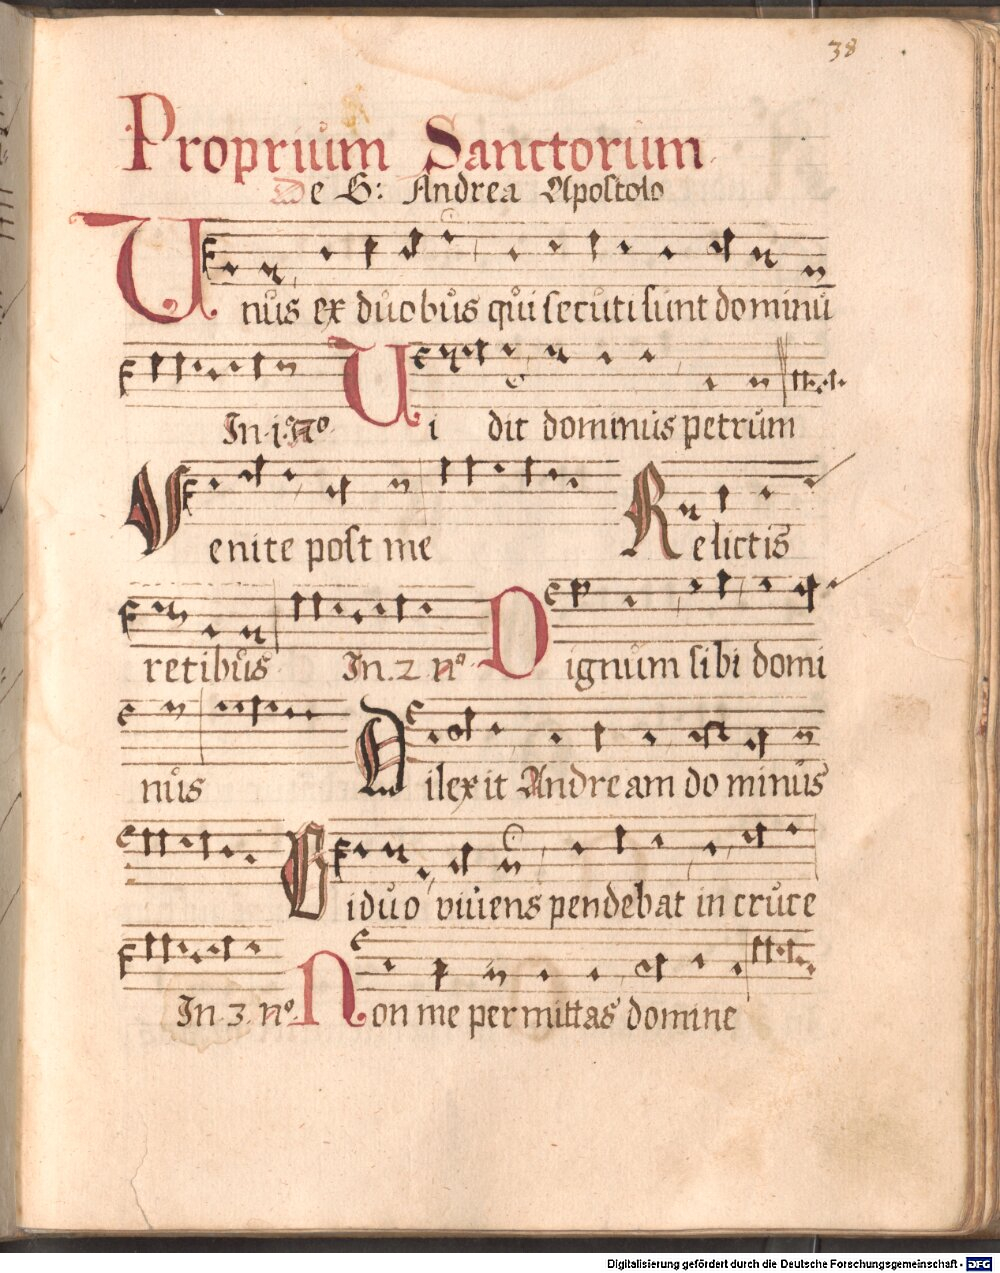 38
Proprium Sanctorum
De S: Andrea Apostolo
Unus ex duobus qui secuti sunt dominū
In .j. Nº. Ui dit dominus petrum
Venite post me Relictis
retibus In .2 nº. Dignum sibi domi
nus Dilexit Andream do minus
Biduo viuens pendebat in cruce
In .3. nº. Non me permittas domine
Digitalisierung gefördert durch die Deutsche Forschungsgemeinschaft - DFG